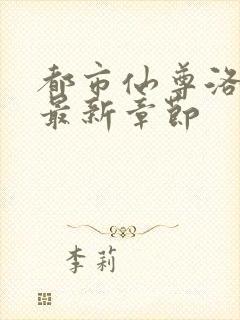 都市仙尊洛
最新章节
李莉